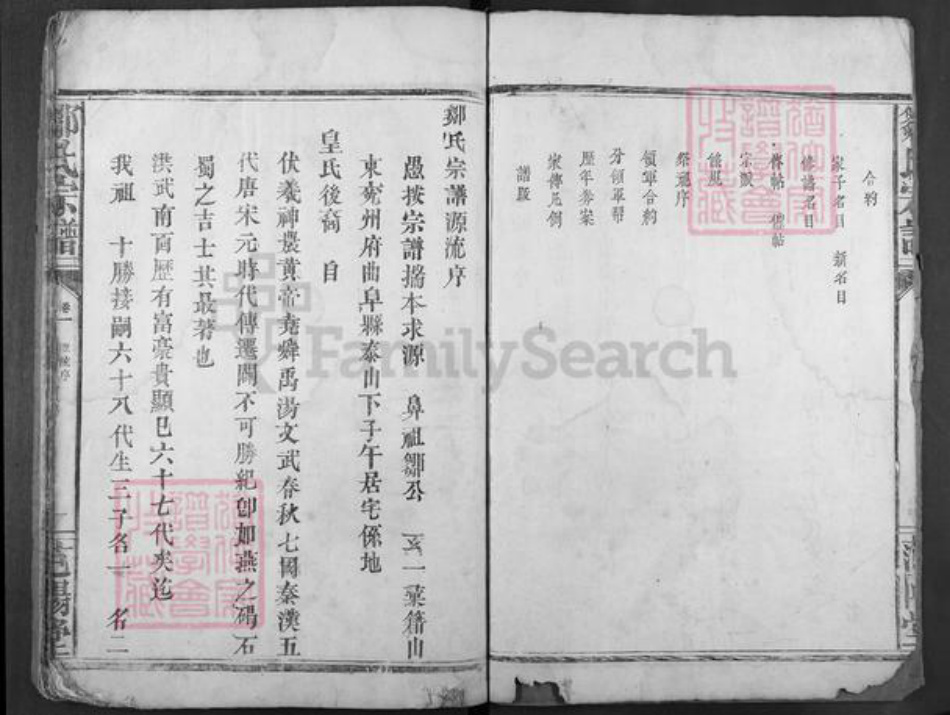 合約
家子名目 新名目
修譜名目
脩帖 舊帖
宗派
祭祀序
領軍合約
分領軍幫
歷年券案
家傳凡例
譜跋
鄒氏宗譜源流序
愚按宗譜揣本求源 鼻祖鄒公 一業籍山
東兖州府曲阜縣泰山下子午居宅係地
皇氏後裔 自
伏羲神農黃帝堯舜禹湯文武春秋七國秦漢五
代唐宋元時代傳遷闊不可勝紀卽如燕之碣石
蜀之吉士其最著也
洪武南直歷有富豪貴顯已六十七代矣迄
我祖 十勝接嗣六十八代生三子名一 名二
鄒氏宗譜
卷一
源流序
范陽堂
FamilySearch